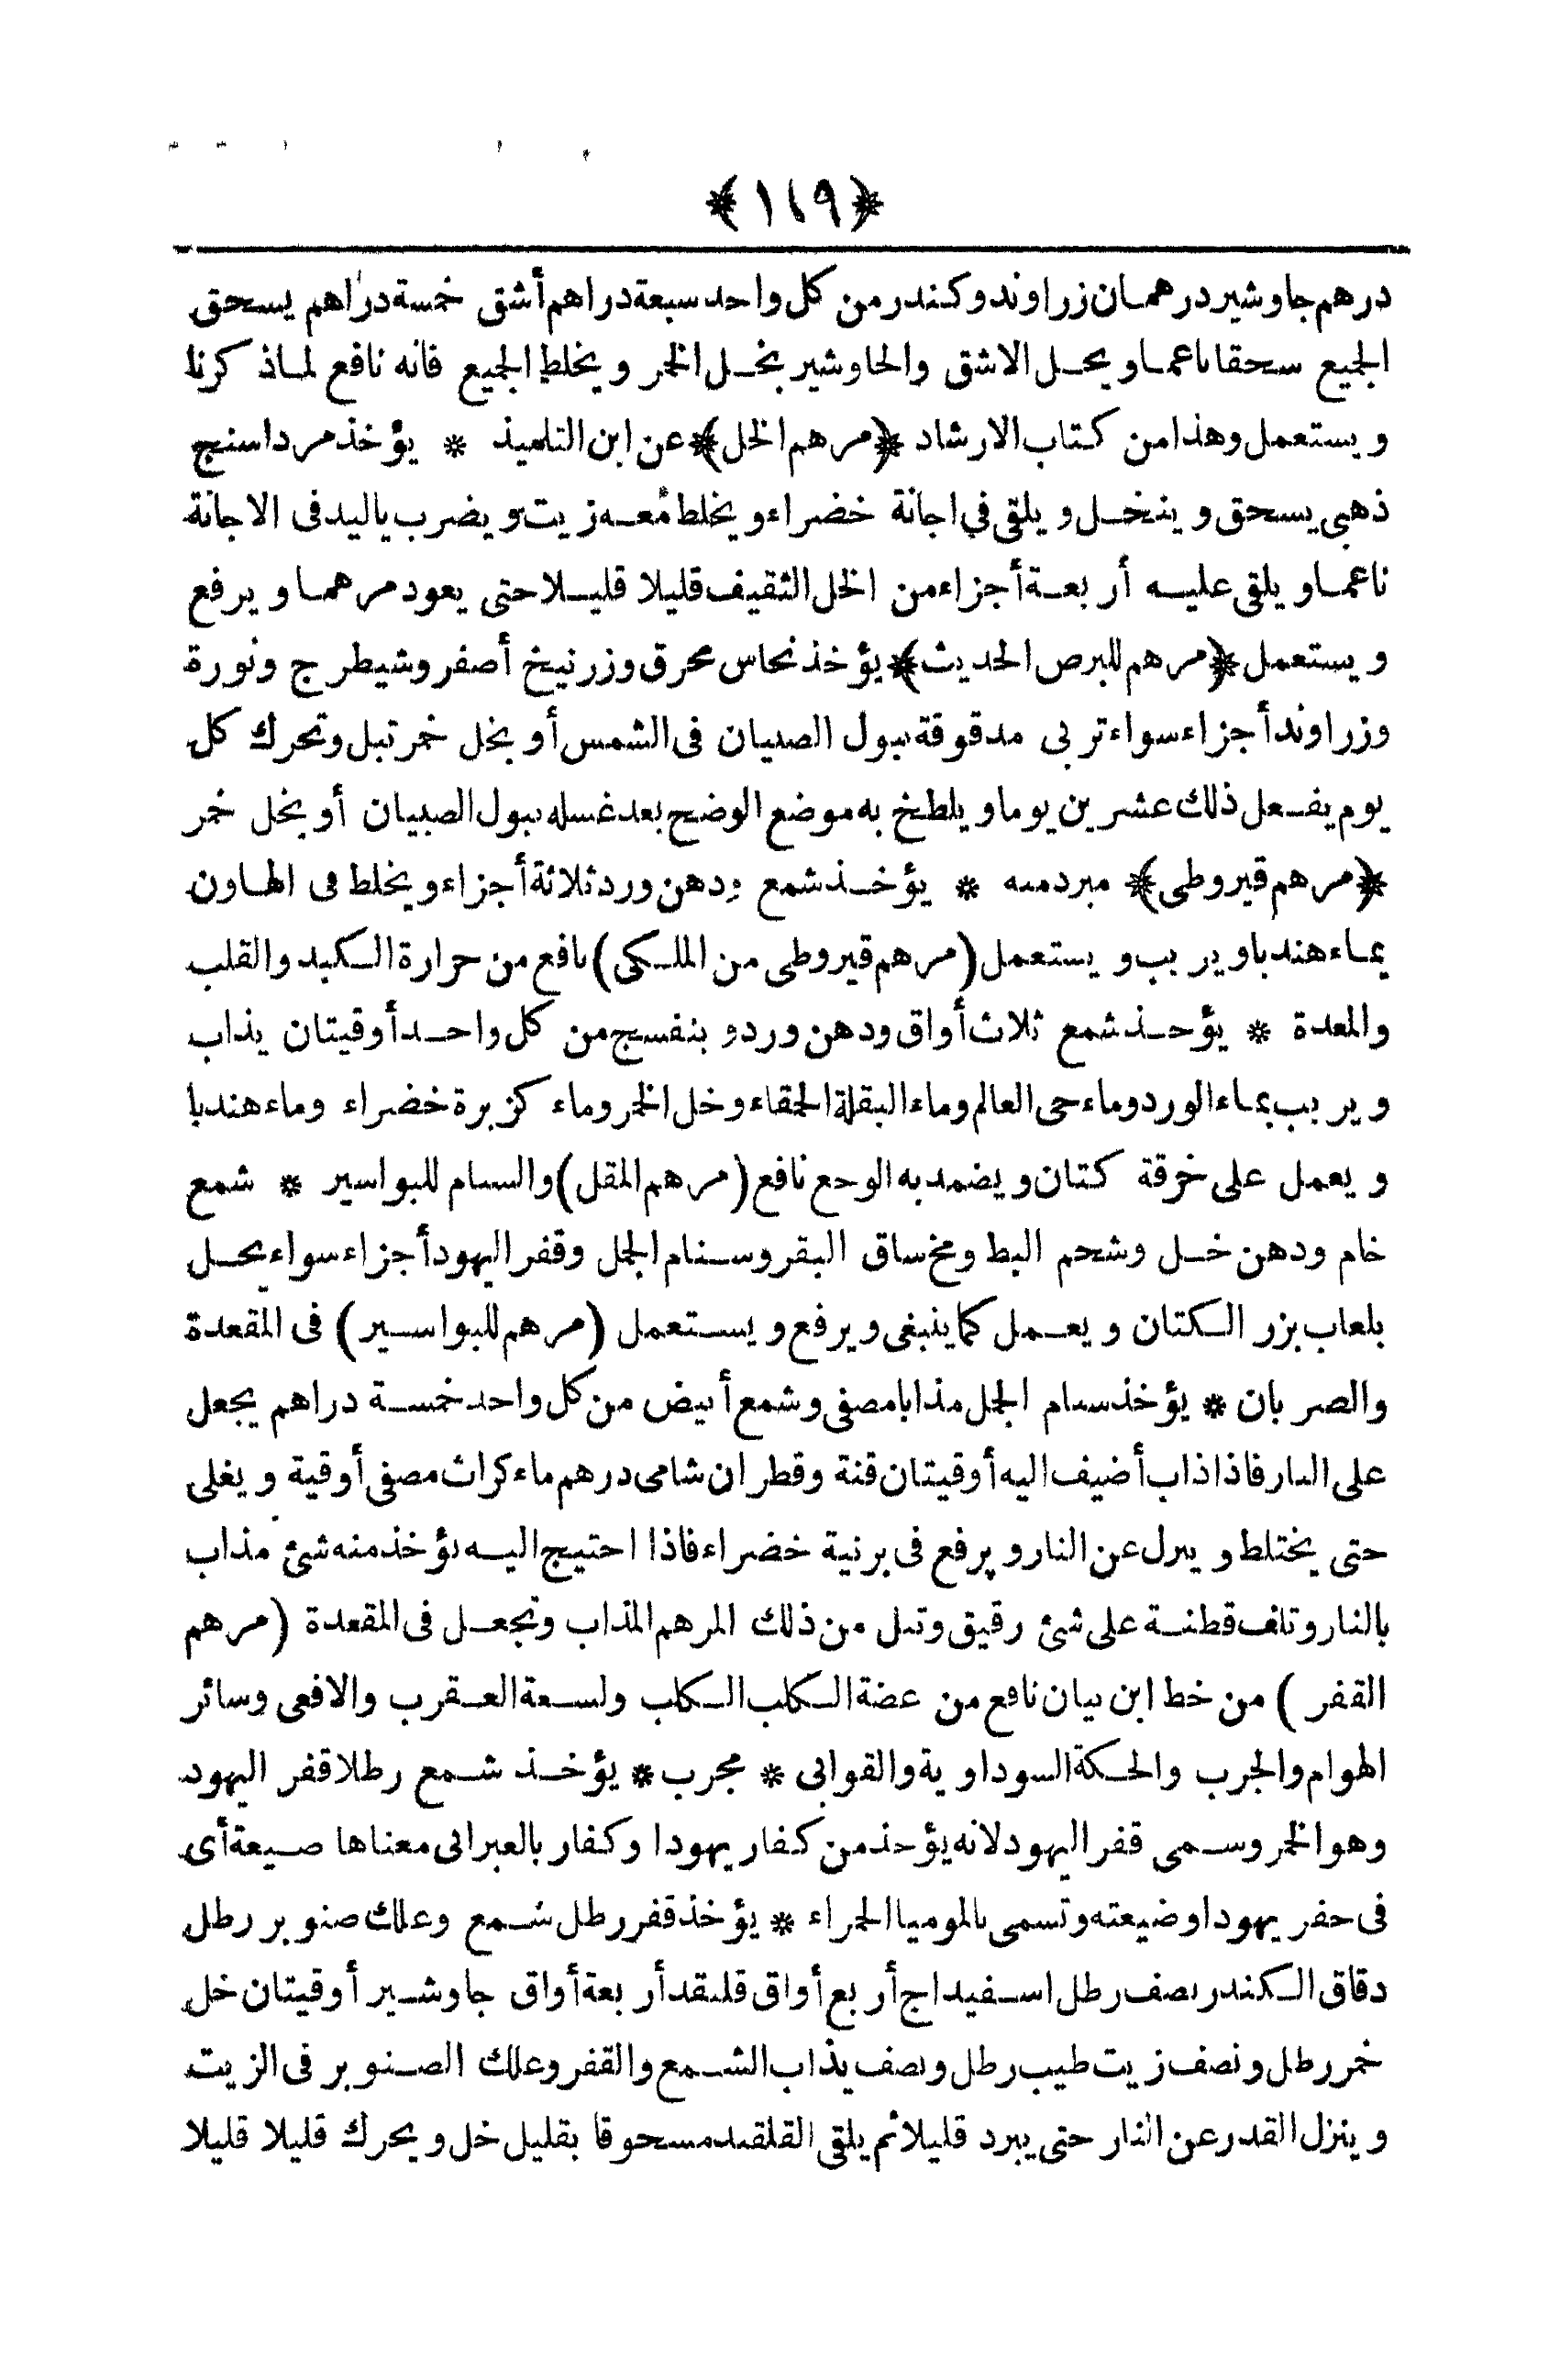 ﴿١٤٩﴾
درهم جاوشير درهمان زراوند وكندر من كل واحد سبعة دراهم أشق خمسة دراهم يسحق
الجميع سحقا ناعما ويحل الاشق والجاوشير بخل الخمر ويخلط الجميع فانه نافع لماذكرنا
ويستعمل وهذا من كتاب الارشاد ﴿مرهم الخل﴾ عن ابن التلميذ * يؤخذ مرداسنج
ذهبى يسحق وينخل ويلقى في اجانة خضراء ويخلط معه زيت ويضرب باليد فى الاجانة
ناعما ويلقى عليه أربعة أجزاء من الخل الثقيف قليلا قليلا حتى يعود مرهما ويرفع
ويستعمل ﴿مرهم للبرص الحديث﴾ يؤخذ نحاس محرق وزرنيخ أصفر وشيطرج ونورة
وزراوند أجزاء سواء تربى مدقوقة ببول الصبيان فى الشمس أو بخل خمر تبل وتحرك كل
يوم يفعل ذلك عشرين يوما ويلطخ به موضع الوضح بعد غسله ببول الصبيان أو بخل خمر
﴿مرهم قيروطى﴾ مبرد منه * يؤخذ شمع ودهن ورد ثلاثة أجزاء ويخلط فى الهاون
بماء هندبا ويربب ويستعمل (مرهم قيروطى من الملكى) نافع من حرارة الكبد والقلب
والمعدة * يؤخذ شمع ثلاث أواق ودهن ورد و بنفسج من كل واحد أوقيتان يذاب
ويربب بماء الورد وماء حى العالم وماء البقلة الحمقاء وخل الخمر وماء كزبرة خضراء وماء هندبا
ويعمل على خرقة كتان ويضمد به الوجع نافع (مرهم المقل) والسنام للبواسير * شمع
خام ودهن خل وشحم البط ومخ ساق البقر وسنام الجمل وقفر اليهود أجزاء سواء يحل
بلعاب بزر الكتان ويعمل كما ينبغى ويرفع ويستعمل (مرهم للبواسير) فى المقعدة
والضربان * يؤخذ سنام الجمل مذابا مصفى وشمع أبيض من كل واحد خمسة دراهم يجعل
على النار فاذا ذاب أضيف اليه أوقيتان قنة وقطران شامى درهم ماء كراث مصفى أوقية ويغلى
حتى يختلط وينزل عن النار ويرفع فى برنية خضراء فاذا احتيج اليه يؤخذ منه شئ مذاب
بالنار وتلف قطنة على شئ رقيق وتبل من ذلك المرهم المذاب وتجعل فى المقعدة (مرهم
القفر) من خط ابن بيان نافع من عضة الكلب الكلب ولسعة العقرب والافعى وسائر
الهوام والجرب والحكة السوداوية والقوابى * مجرب * يؤخذ شمع رطلا قفر اليهود
وهو الخمر وسمى قفر اليهود لانه يؤخذ من كفار يهودا وكفار بالعبرانى معناها ضيعة أى
فى حفر يهودا وضيعته وتسمى بالموميا الحمراء * يؤخذ قفر رطل شمع وعلك صنوبر رطل
دقاق الكندر نصف رطل اسفيداج أربع أواق قلقند أربعة أواق جاوشير أوقيتان خل
خمر رطل ونصف زيت طيب رطل ونصف يذاب الشمع والقفر وعلك الصنوبر فى الزيت
وينزل القدر عن النار حتى يبرد قليلا ثم يلقى القلقند مسحوقا بقليل خل ويحرك قليلا قليلا